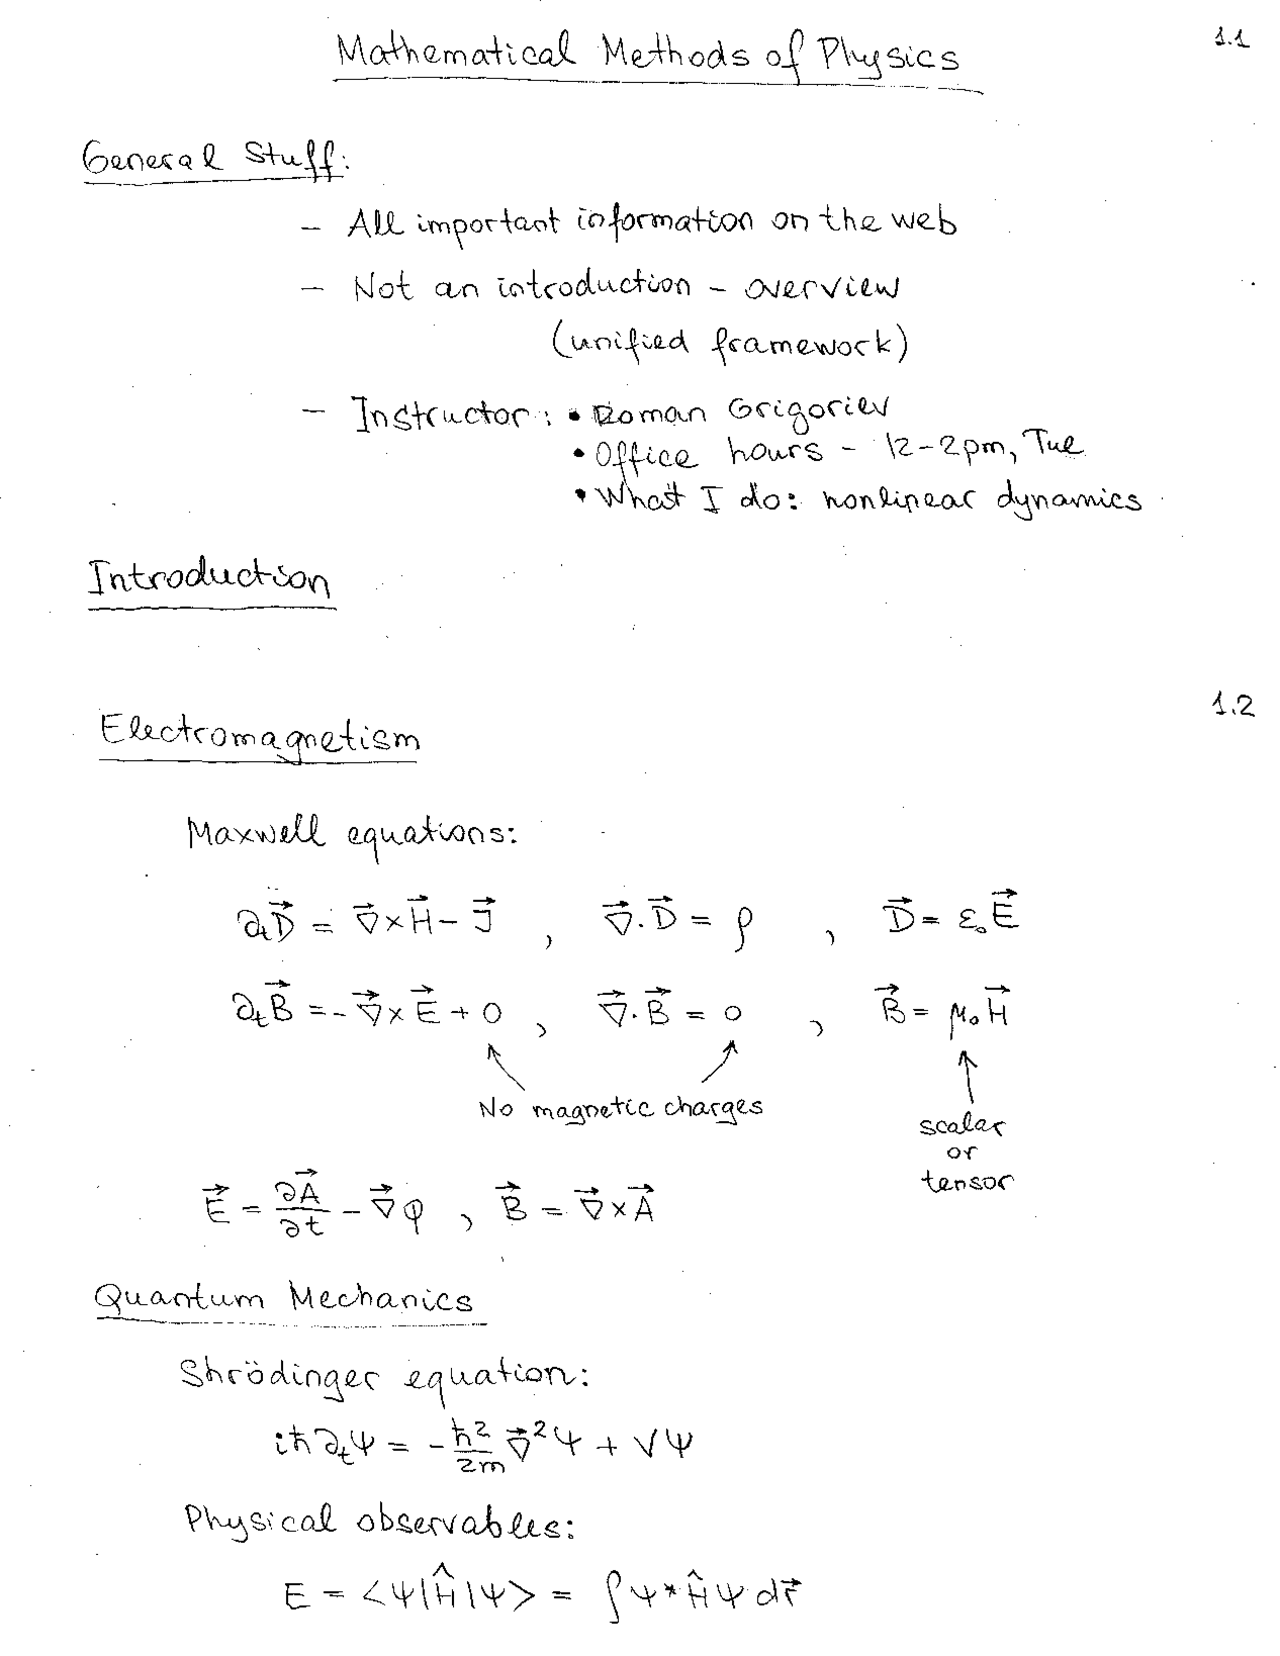 1.1
Mathematical Methods of Physics
General Stuff:
– All important information on the web
– Not an introduction – overview
(unified framework)
– Instructor: • Roman Grigoriev
• Office hours – 12–2pm, Tue
• What I do: nonlinear dynamics
Introduction
1.2
Electromagnetism
Maxwell equations:
∂ₜD⃗ = ∇⃗×H⃗ – J⃗ , ∇⃗·D⃗ = ρ , D⃗ = ε₀E⃗
∂ₜB⃗ = –∇⃗×E⃗ + 0 , ∇⃗·B⃗ = 0 , B⃗ = μ₀H⃗
No magnetic charges
scalar
or
tensor
E⃗ = ∂A⃗/∂t – ∇⃗φ , B⃗ = ∇⃗×A⃗
Quantum Mechanics
Shrödinger equation:
iħ∂ₜψ = –ħ²/2m ∇⃗²ψ + Vψ
Physical observables:
E = <ψ|Ĥ|ψ> = ∫ψ*Ĥψdr⃗